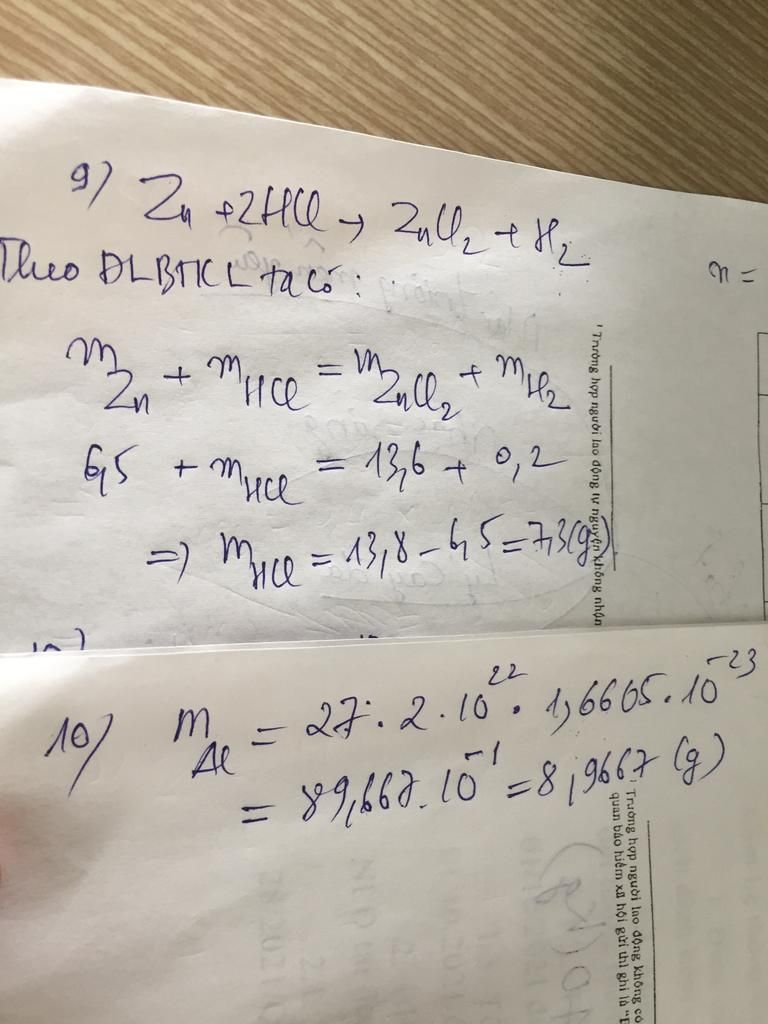 9) Zn + 2HCl → ZnCl₂ + H₂
Theo ĐLBTKL ta có:
m Zn + m HCl = m ZnCl₂ + m H₂
6,5 + m HCl = 13,6 + 0,2
=> m HCl = 13,8 - 6,5 = 7,3 (g)
n =
¹ Trường hợp người lao động tự nguyện không nhận
10) m Al = 27 . 2 . 10²² . 1,6605 . 10⁻²³
= 89,667 . 10⁻¹ = 8,9667 (g)
¹ Trường hợp người lao động không có
quan bảo hiểm xã hội gửi thì ghi là "